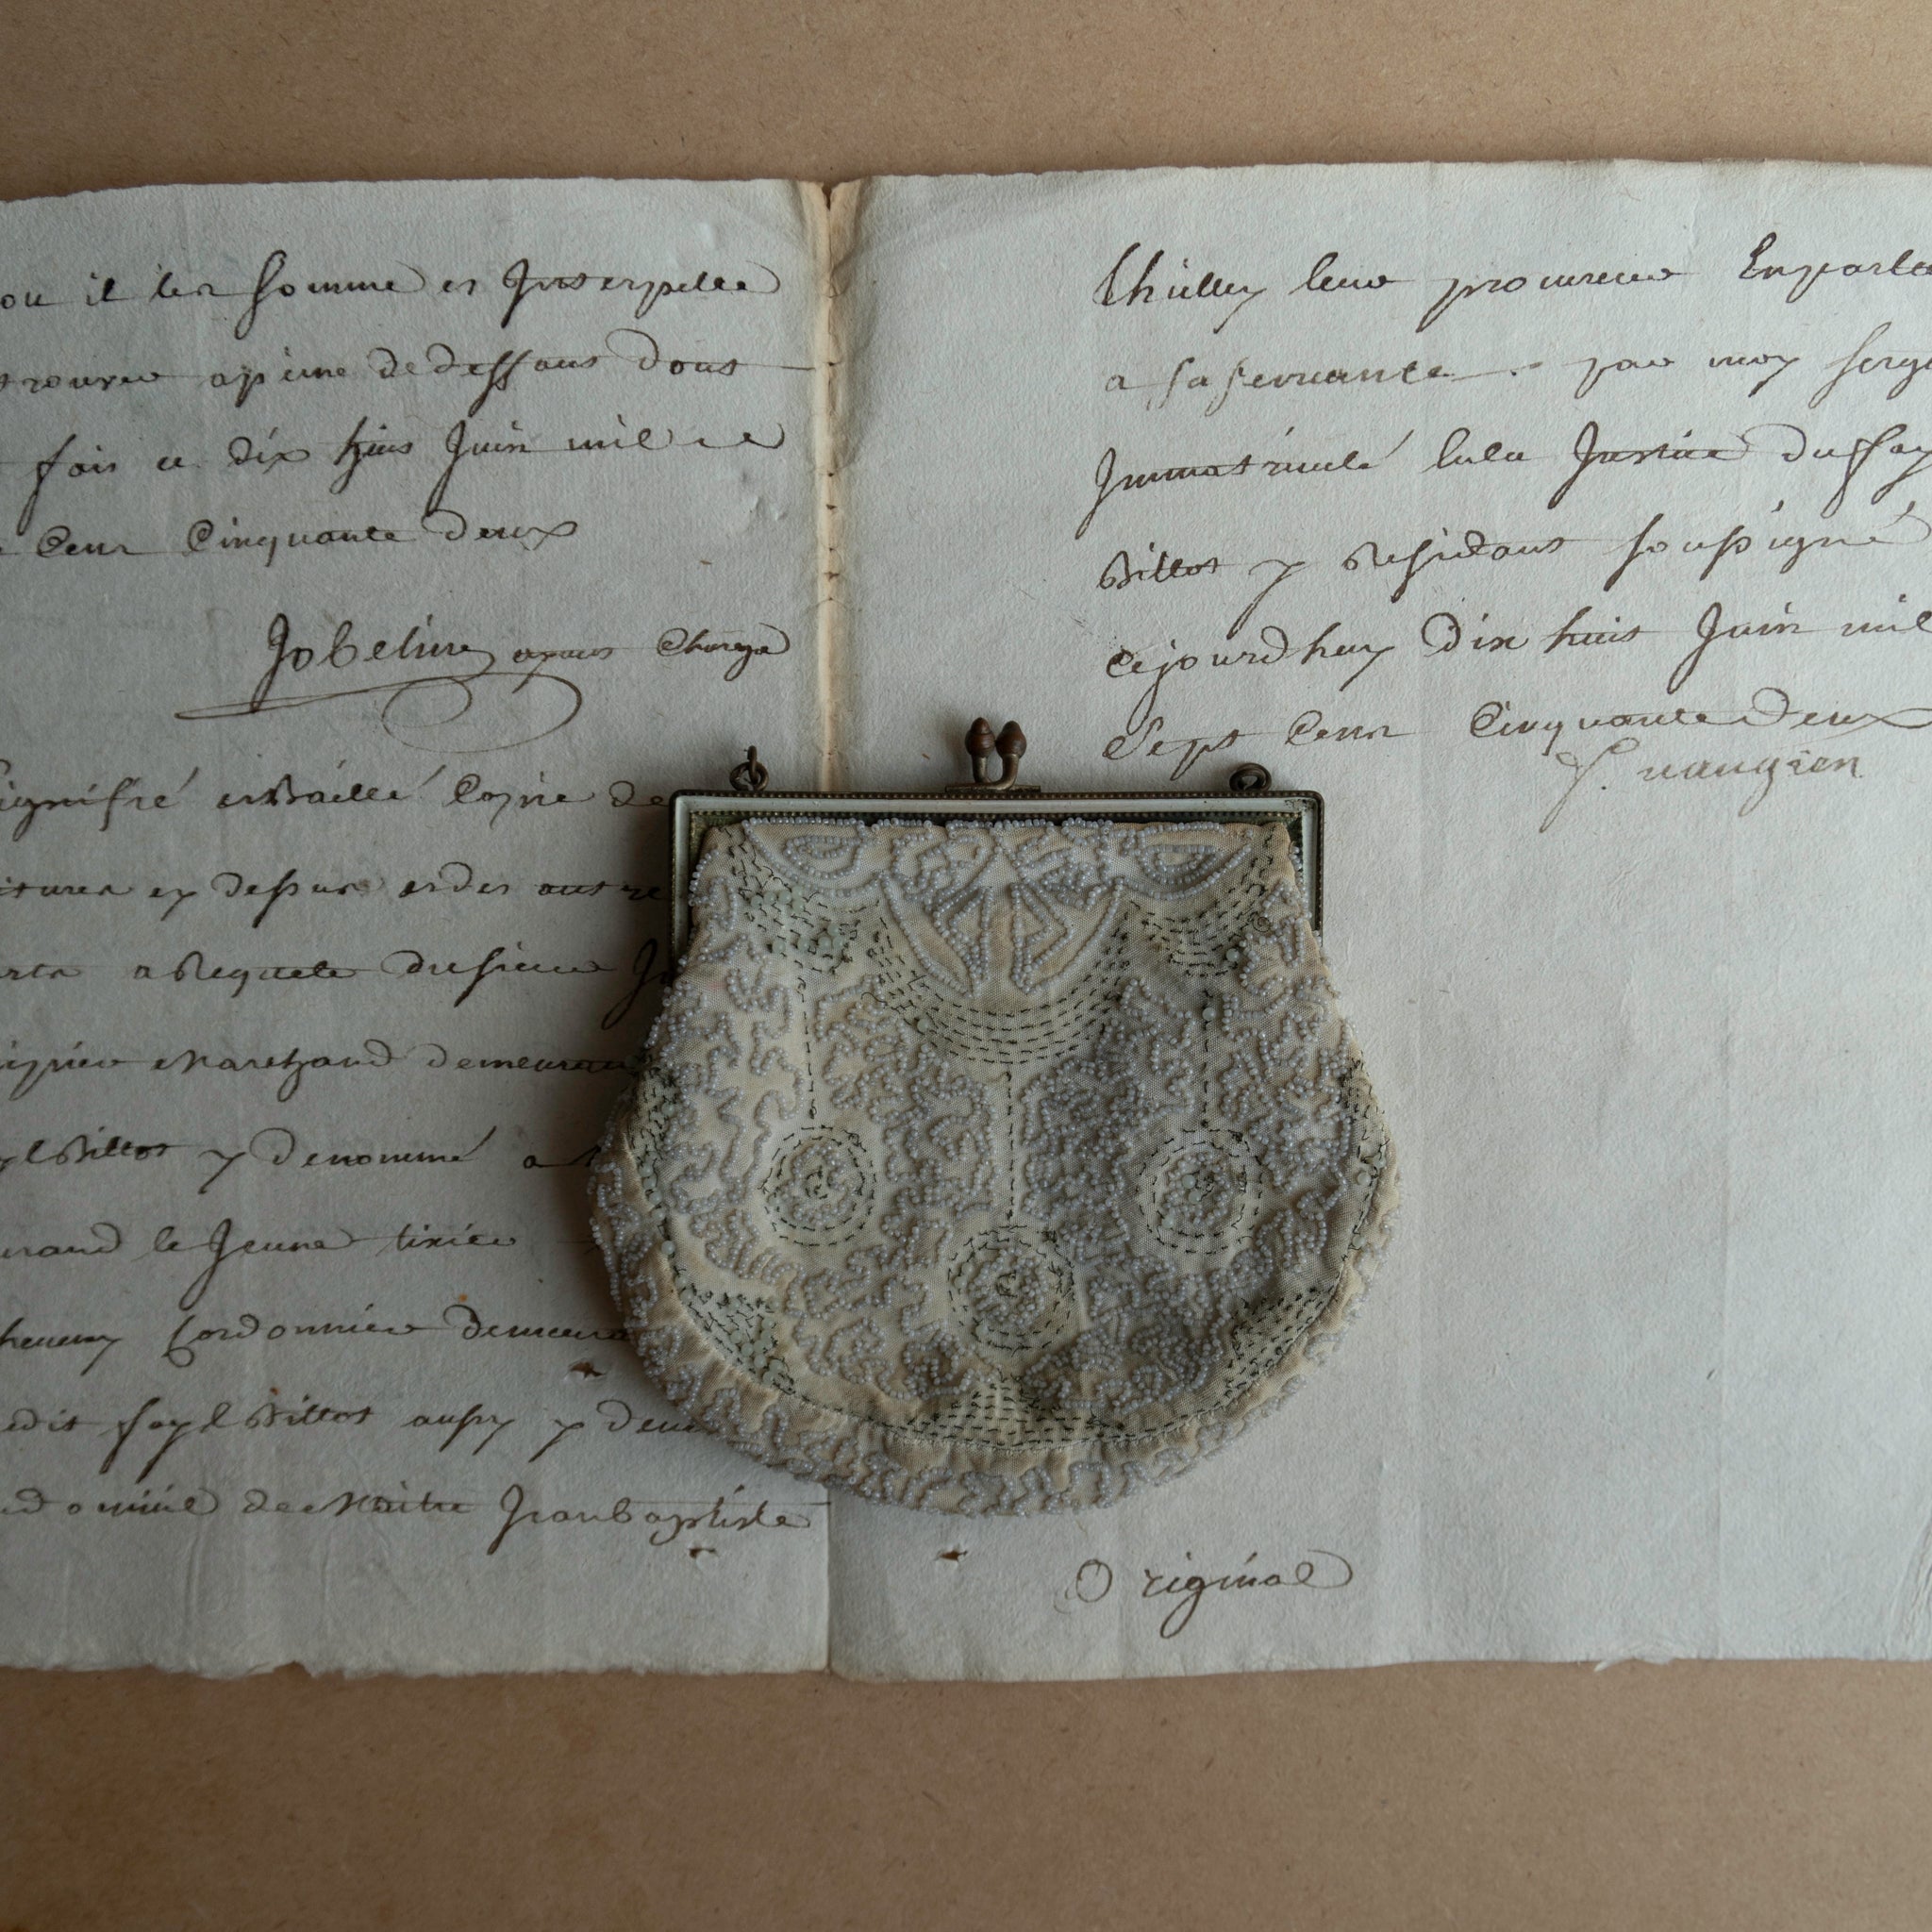 ou il les somme et Interpelle
trouver apeine de deffaut dont
fait ce dix huit Juin mil
Cent Cinquante deux
Jobelin ayant Charge
signifié et Baillé Copie de
itures cy dessus et des autre
a Requete du sieur
Marchand demeurant
Billot y denommé a
le Jeune
Cordonnier demeura
edit faylBillot aussy y dem
domicile de Maitre Jean baptiste
thielley leur procureur En parla
a sa servante par moy serge
Immatriculé en la Justice du fay
Billot y Residant soussigné
Cejourdhuy dix huit Juin mil
Sept Cent Cinquante Deux
Original